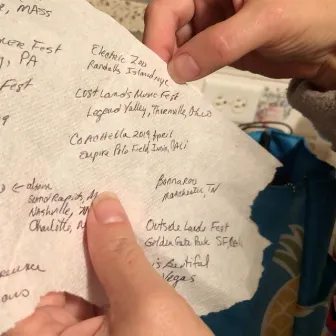 MASS
Fest
PA
Fest
Electric Zoo
Randalls Island, NYC
Lost Lands Music Fest
Legend Valley, Thornville, Ohio
Coachella 2019 April
Empire Polo Field, Indio, CALI
← album
Grand Rapids, M
Nashville,
Charlotte, N
Bonnaroo
Manchester, TN
Outside Lands Fest
Golden Gate Park SF
is Beutiful
Vegas